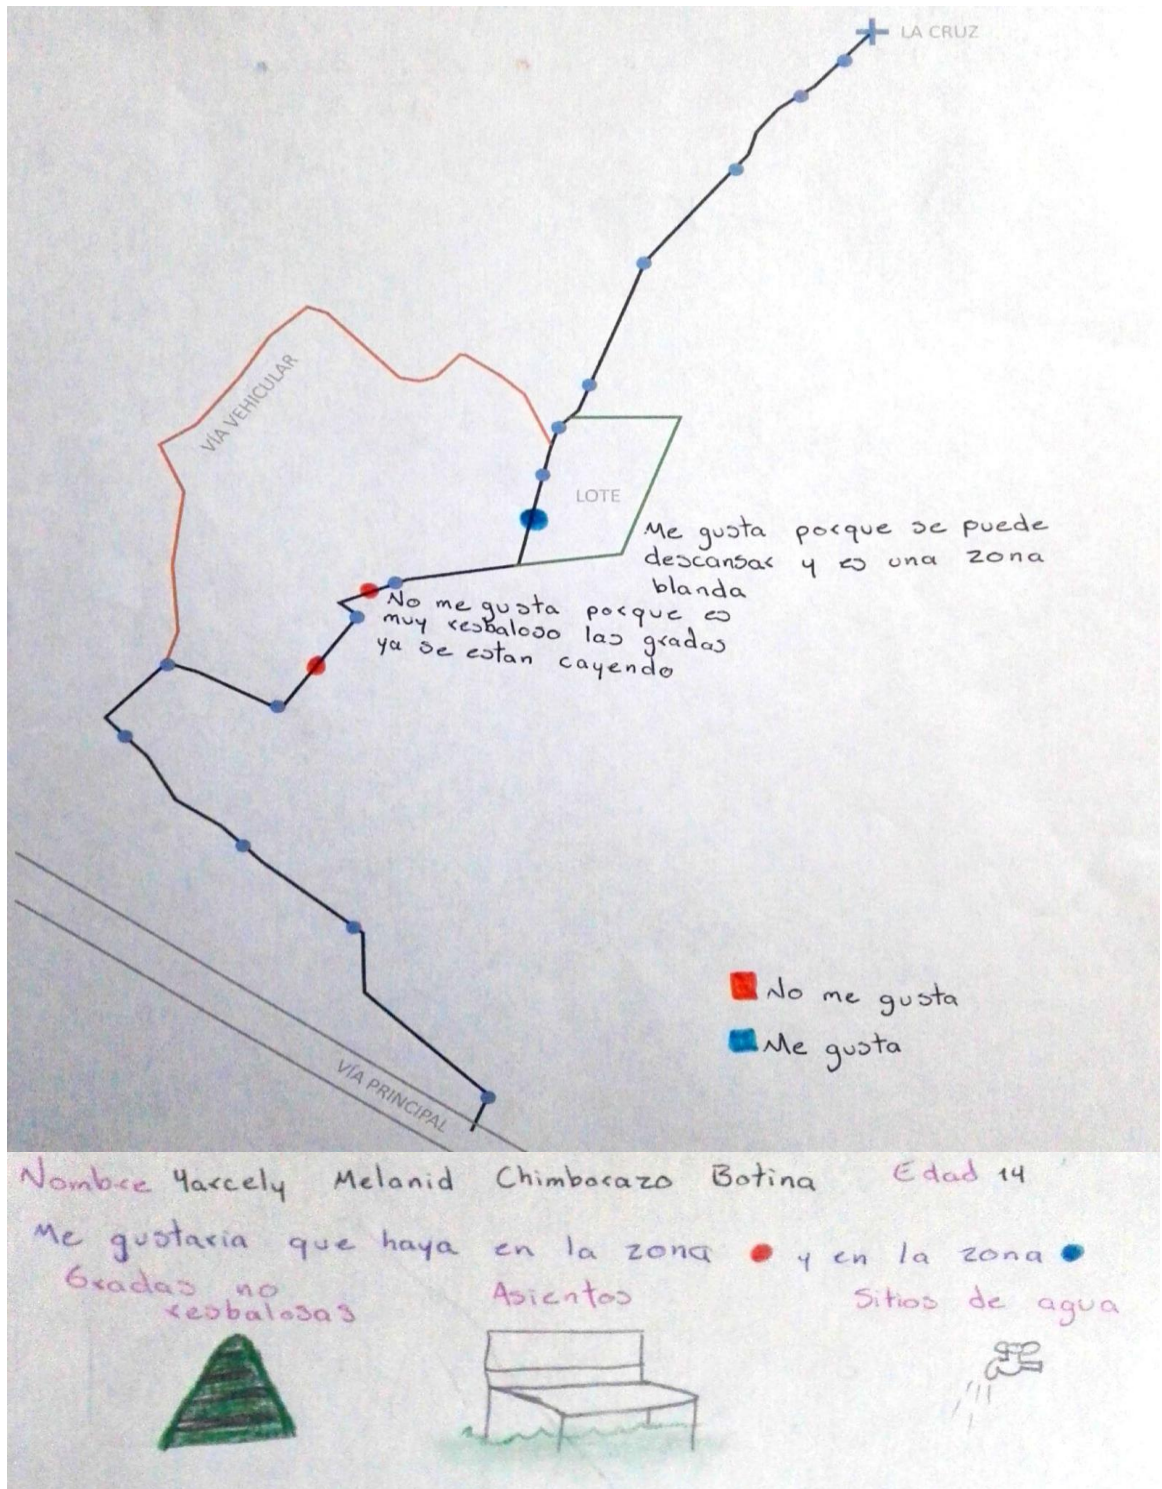 LA CRUZ
VÍA VEHICULAR
LOTE
Me gusta porque se puede
descansar y es una zona
blanda
No me gusta porque es
muy resbaloso las gradas
ya se estan cayendo
No me gusta
Me gusta
VÍA PRINCIPAL
Nombre Yarcely Melanid Chimborazo Botina Edad 14
Me gustaria que haya en la zona y en la zona
Gradas no
resbalosas
Asientos
Sitios de agua